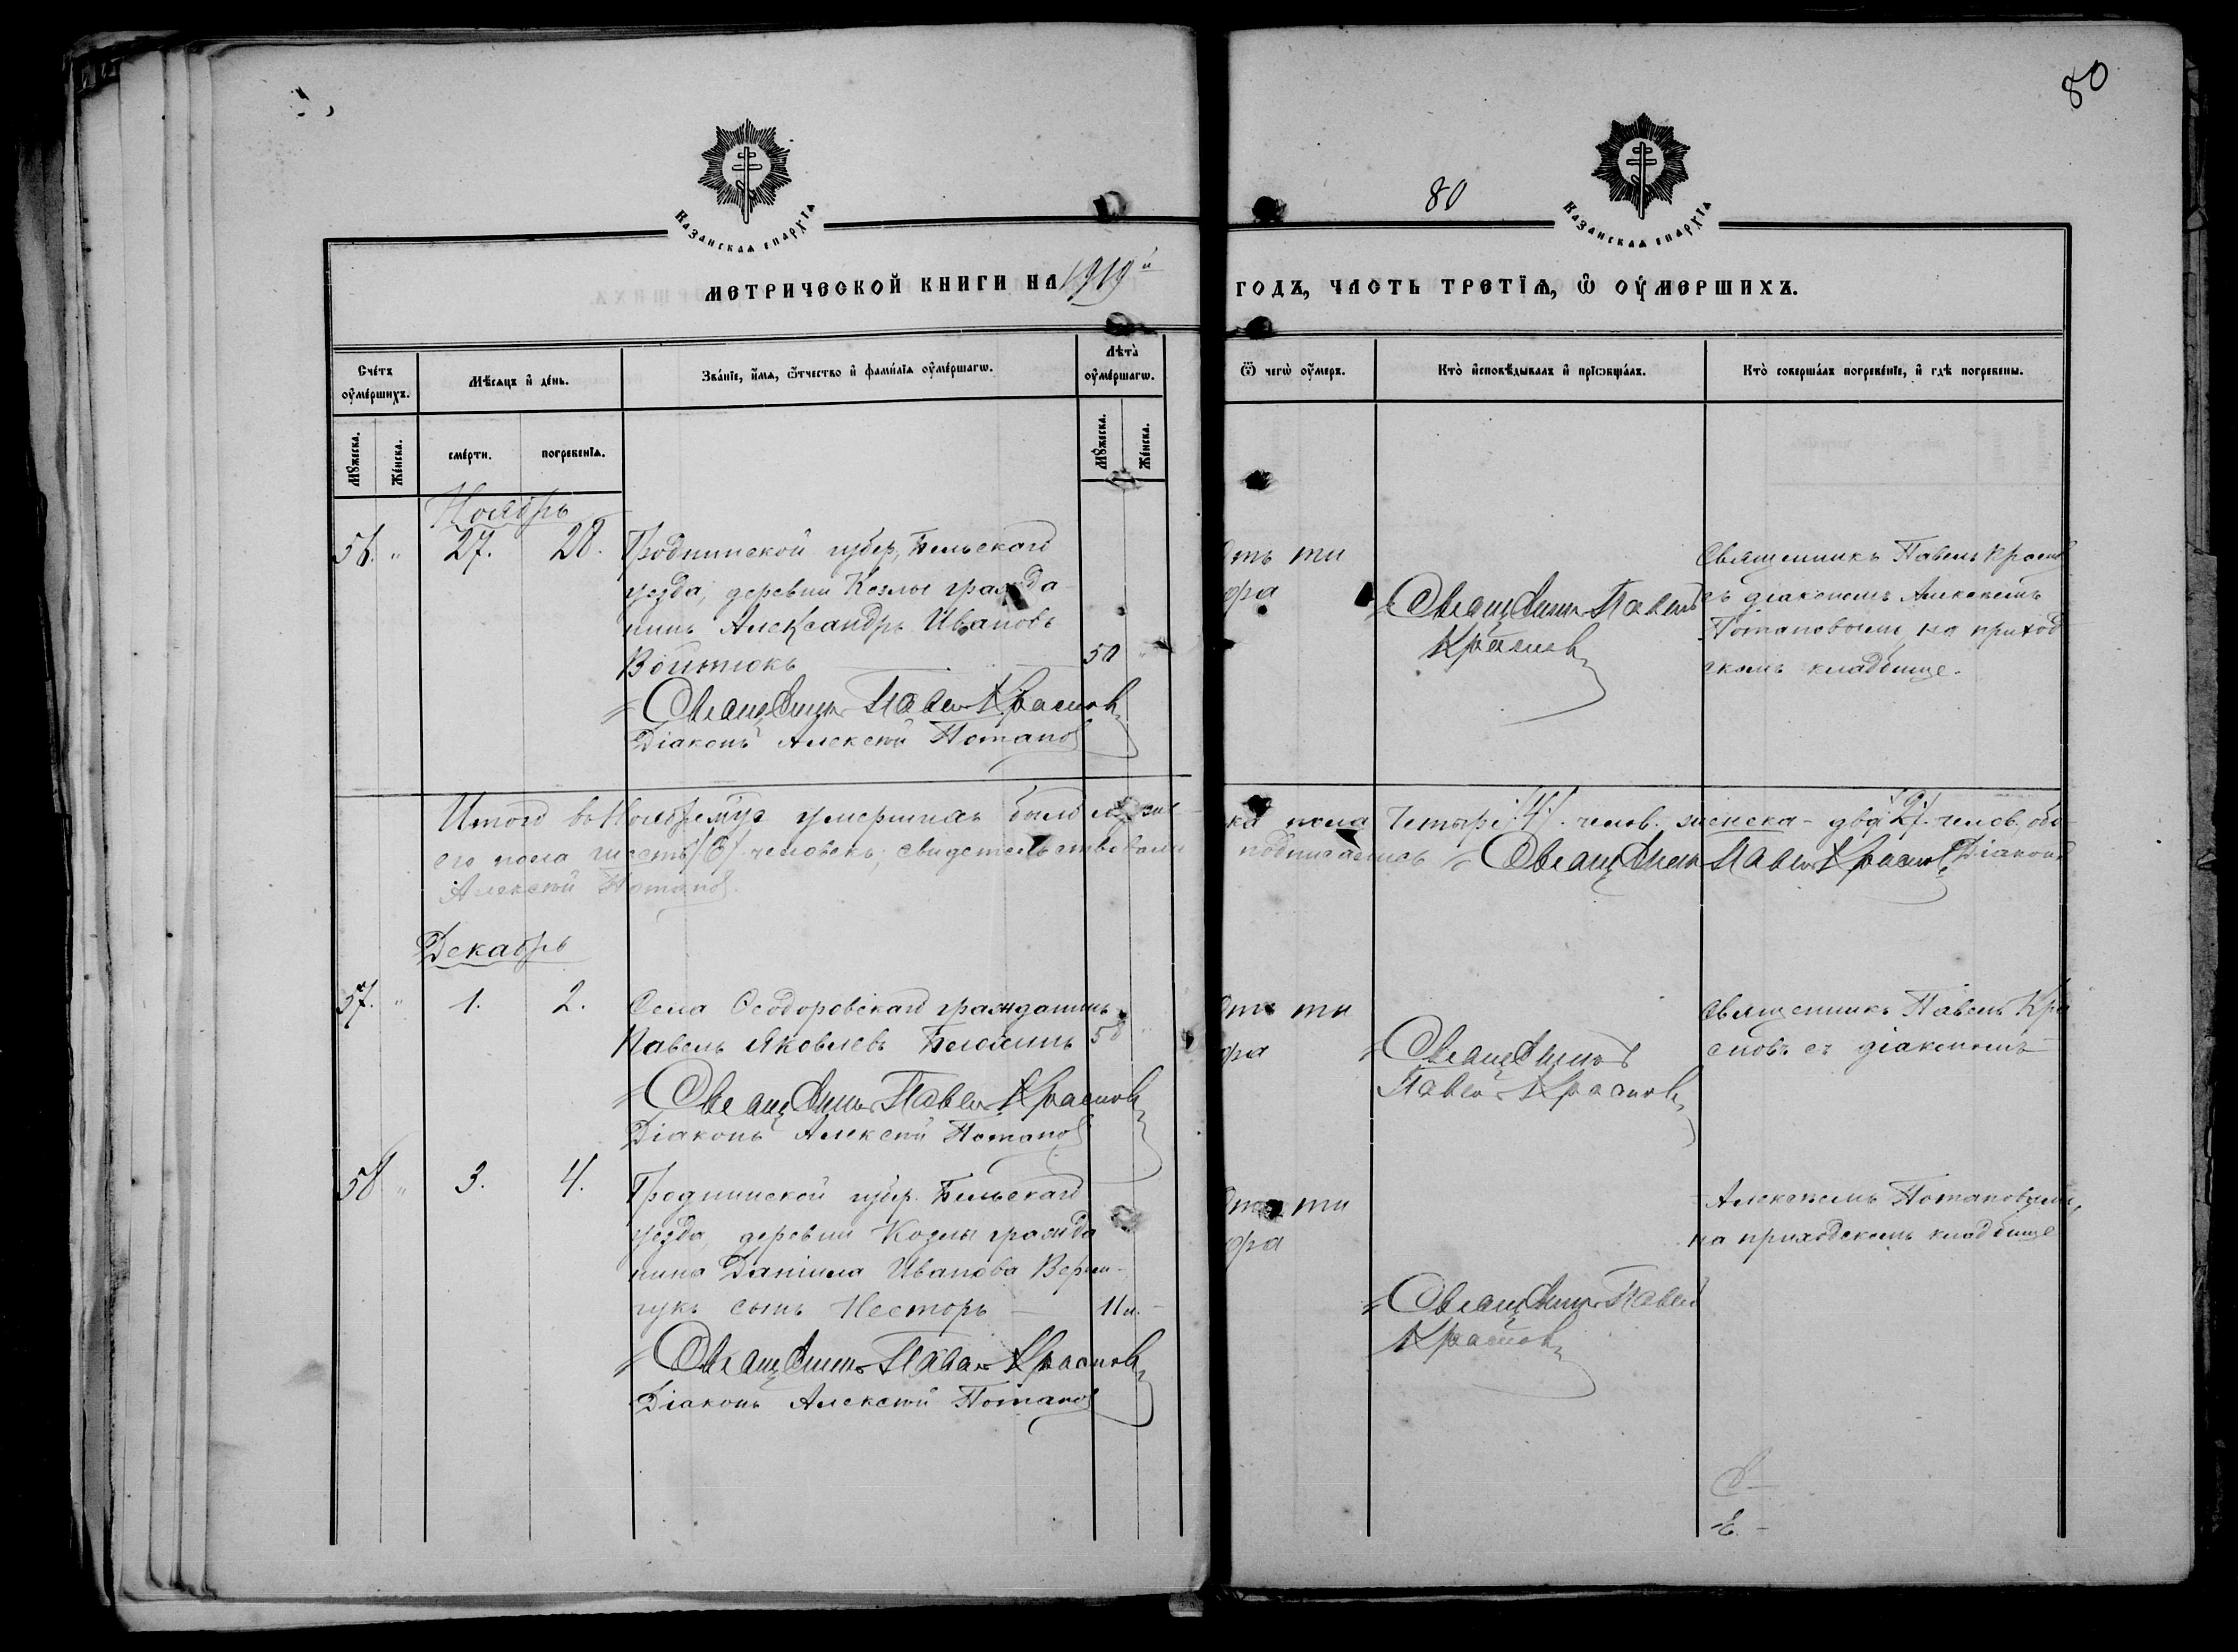 80
80
КАЗАНСКАѦ ЕПАРХІѦ
КАЗАНСКАѦ ЕПАРХІѦ
МЕТРИЧЕСКОЙ КНИГИ НА 1919й
ГОДЪ, ЧАСТЬ ТРЕТЇѦ, Ѿ ОУМЕРШИХЪ.
Счетъ оумершихъ.
Мѣсѧцъ и день.
Званїе, имѧ, ѿчество и фамилїѧ оумершагѡ.
Лѣта оумершагѡ.
Ѿ чегѡ оумеръ.
Кто исповѣдывалъ и прїѡбщалъ.
Кто совершалъ погребенїе, и гдѣ погребены.
Мꙋжеска.
Женска.
смерти.
погребенїѧ.
Мꙋжеска.
Женска.
Ноябрь
56. " 27. 28. Гродненской губер, Бельскаго
уезда, деревни Козлы гражда
нинъ Александръ Ивановъ
Войтюкъ 50 "
Священникъ Павелъ Красновъ
Діаконъ Алексѣй Потаповъ
Отъ ти
фа
Священникъ Павелъ
Красновъ
Священникъ Павелъ Красно
съ діакономъ Алексѣемъ
Потаповымъ, на приход
скомъ кладбище.
Итого въ Ноябре м-це умершихъ было мужес
ка пола четыре /4/. челов. женска - два /2/. челов. обо
его пола шесть /6/. человекъ; свидетельствовали
подписались Священникъ Павелъ Красновъ, Діаконъ
Алексѣй Потаповъ.
Декабрь
57. " 1. 2. Села Ѳеодоровскаго гражданинъ
Павелъ Яковлевъ 58 "
Священникъ Павелъ Красновъ
Діаконъ Алексѣй Потаповъ
Отъ ти
фа
Священникъ
Павелъ Красновъ
Священникъ Павелъ Кра
сновъ съ діакономъ
58 " 3. 4. Гродненской губер. Бельскаго
уезда, деревни Козлы гражда
нина Даніила Иванова
сынъ Несторъ — 11 м. —
Священникъ Павелъ Красновъ
Діаконъ Алексѣй Потаповъ
Отъ ти
фа
Священникъ Павелъ
Красновъ
Алексѣемъ Потаповымъ,
на приходскомъ кладбище